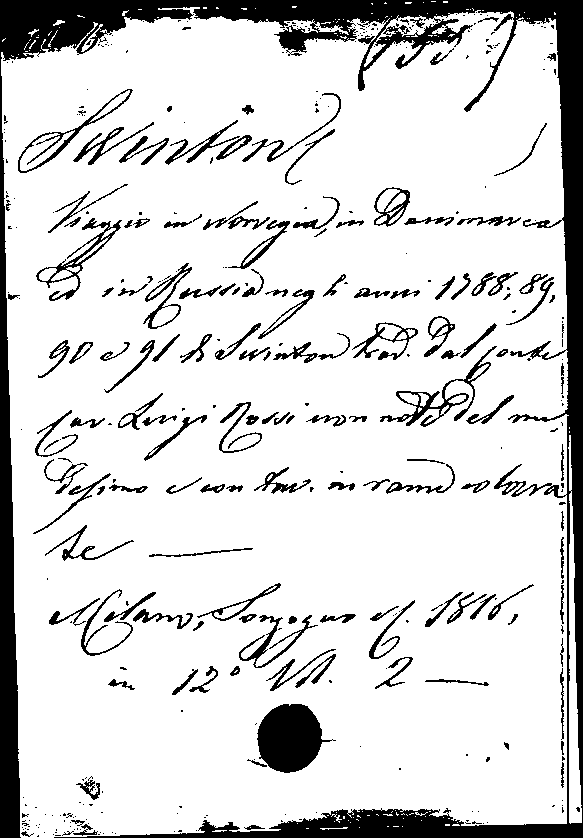 Swinton
Viaggio in Norvegia, in Danimarca
ed in Russia negli anni 1788, 89,
90 e 91 di Swinton trad. dal conte
cav. Luigi Rossi con note del me-
desimo e con tav. in rame colora
te —
Milano, Sonzogno e C. 1816,
in 12° Vol. 2 —